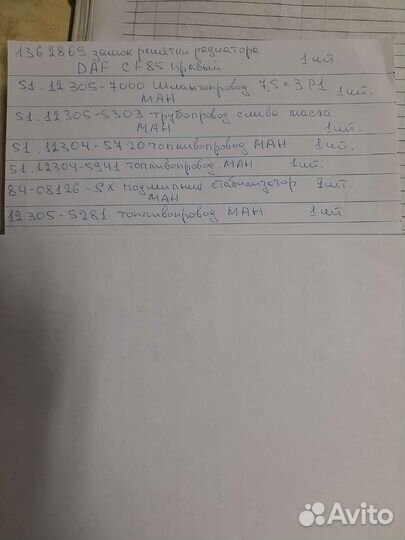 1362869 замок решётки радиатора
DAF CF85 правый 1 шт.
51.12305-7000 Шлангопровод 7,5×3 P1 1 шт.
МАН
51.12305-5303 трубопровод слива масла
МАН 1 шт.
51.12304-5720 топливопровод МАН 1 шт.
51.12304-5941 топливопровод МАН 1 шт.
84-08126-SX подшипник стабилизатор 2 шт.
МАН
12305-5281 топливопровод МАН 1 шт.
Avito